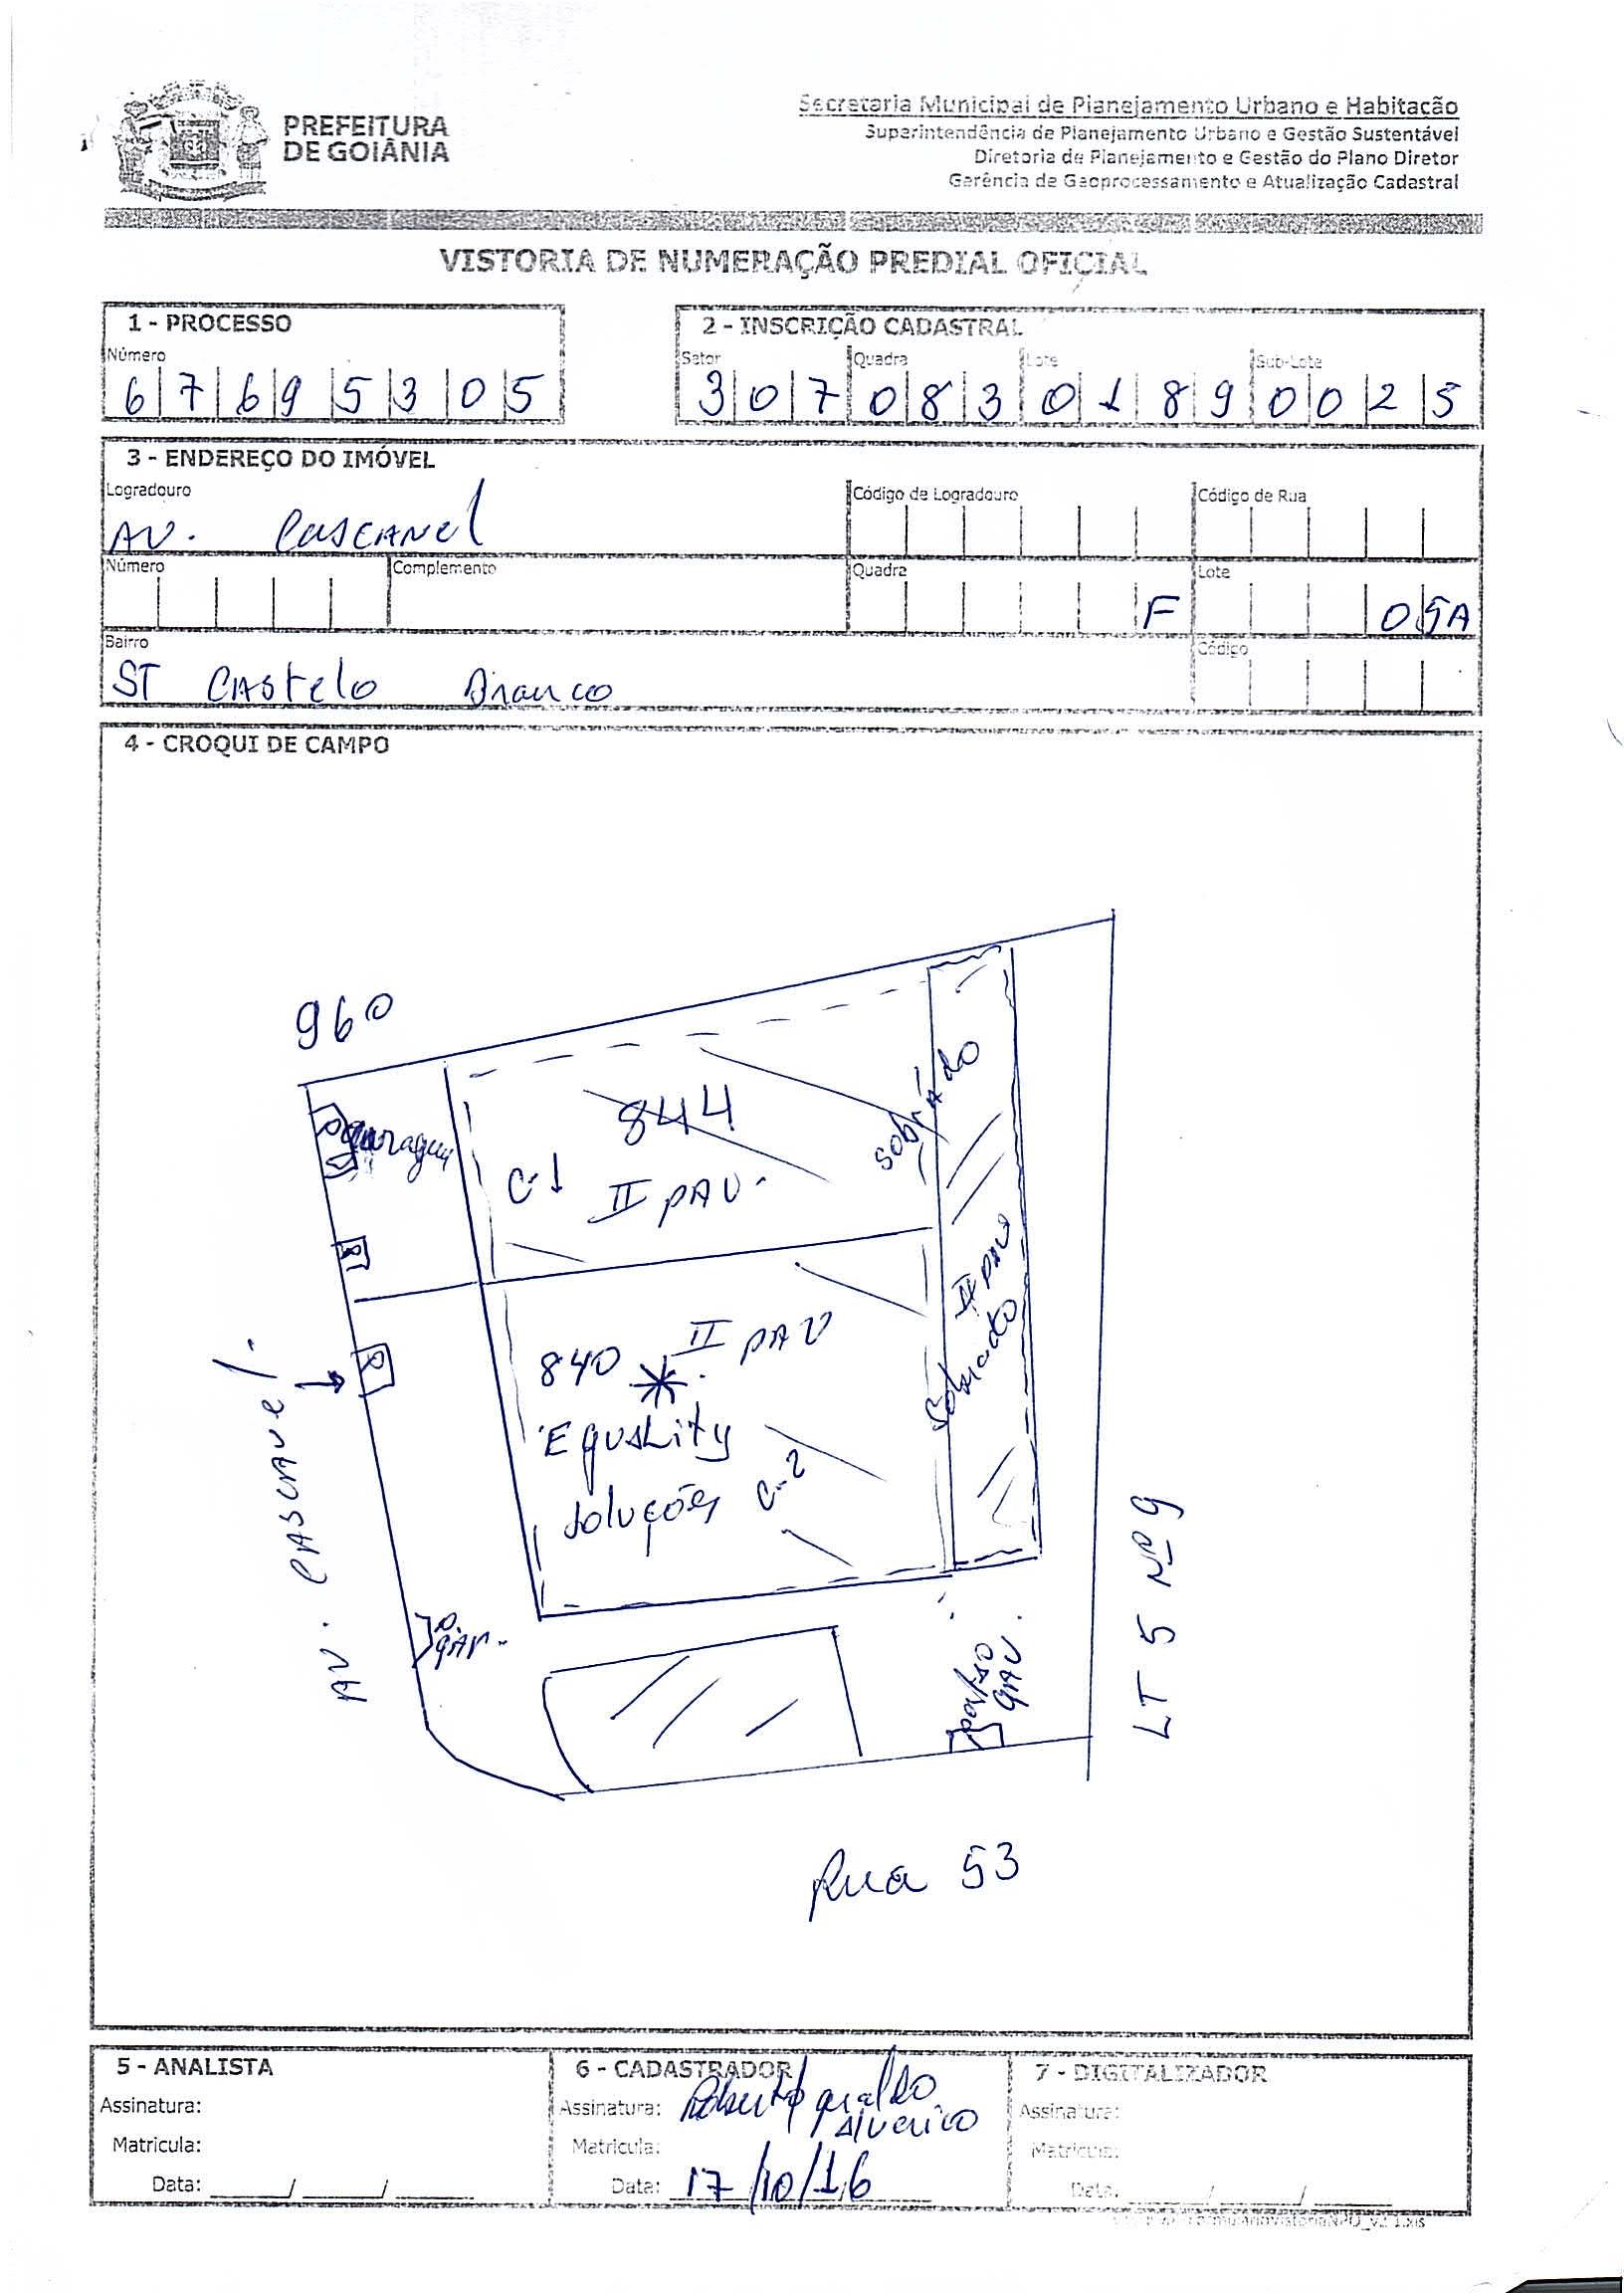 PREFEITURA
DE GOIÂNIA
Secretaria Municipal de Planejamento Urbano e Habitação
Superintendência de Planejamento Urbano e Gestão Sustentável
Diretoria de Planejamento e Gestão do Plano Diretor
Gerência de Geoprocessamento e Atualização Cadastral
VISTORIA DE NUMERAÇÃO PREDIAL OFICIAL
1 - PROCESSO
Número
6 7 6 9 5 3 0 5
2 - INSCRIÇÃO CADASTRAL
Setor Quadra Lote Sub-Lote
3 0 7 0 8 3 0 1 8 9 0 0 2 5
3 - ENDEREÇO DO IMÓVEL
Logradouro Código de Logradouro Código de Rua
AV. CASCAVEl
Número Complemento Quadra Lote
F 05A
Bairro Código
ST CAStelo Branco
4 - CROQUI DE CAMPO
960
garagem
844
C-1 II PAV.
Sobrado
II PAV
Sobrado
840 II PAV
EquaLity
Soluções C-2
AV. CASCAVEl
P.
gAr.
portão
gAV.
LT 5 Nº 9
Rua 53
5 - ANALISTA
Assinatura:
Matricula:
Data: ____/____/____
6 - CADASTRADOR
Assinatura: Roberto geraldo
Matricula:
Data: 17/10/16
7 - DIGITALIZADOR
Assinatura:
Matricula:
Data: ____/____/____